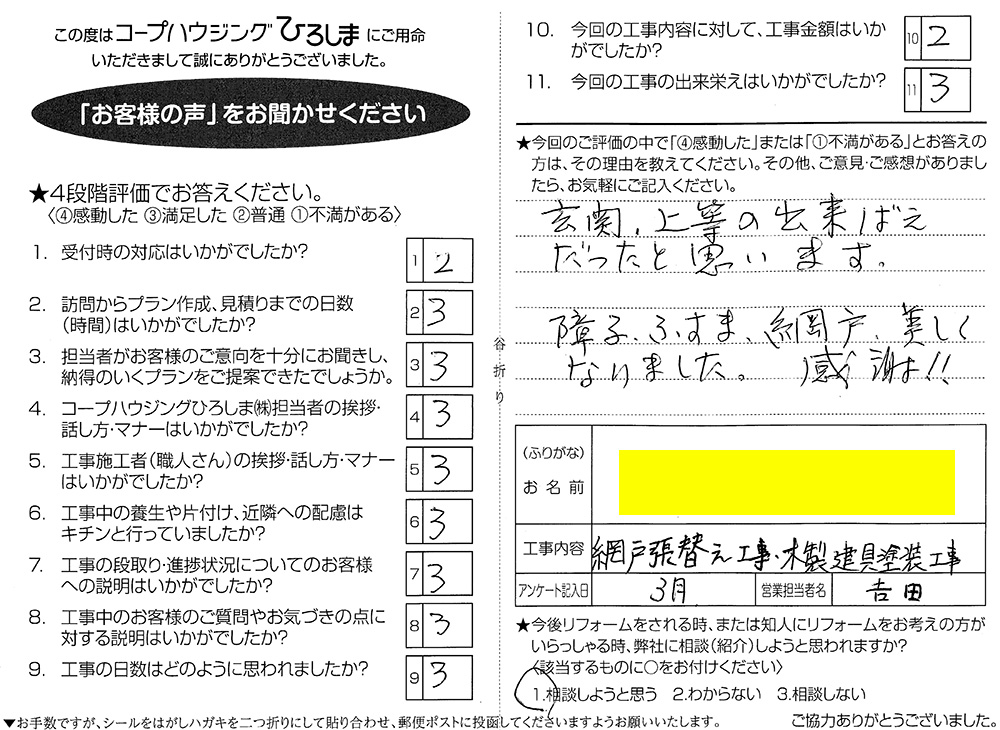 この度はコープハウジングひろしまにご用命
いただきまして誠にありがとうございました。
「お客様の声」をお聞かせください
★4段階評価でお答えください。
〈④感動した ③満足した ②普通 ①不満がある〉
1. 受付時の対応はいかがでしたか?
1 2
2. 訪問からプラン作成、見積りまでの日数
(時間)はいかがでしたか?
2 3
3. 担当者がお客様のご意向を十分にお聞きし、
納得のいくプランをご提案できたでしょうか。
3 3
4. コープハウジングひろしま㈱担当者の挨拶・
話し方・マナーはいかがでしたか?
4 3
5. 工事施工者(職人さん)の挨拶・話し方・マナー
はいかがでしたか?
5 3
6. 工事中の養生や片付け、近隣への配慮は
キチンと行っていましたか?
6 3
7. 工事の段取り・進捗状況についてのお客様
への説明はいかがでしたか?
7 3
8. 工事中のお客様のご質問やお気づきの点に
対する説明はいかがでしたか?
8 3
9. 工事の日数はどのように思われましたか?
9 3
谷折り
10. 今回の工事内容に対して、工事金額はいか
がでしたか?
10 2
11. 今回の工事の出来栄えはいかがでしたか?
11 3
★今回のご評価の中で「④感動した」または「①不満がある」とお答えの
方は、その理由を教えてください。その他、ご意見・ご感想がありまし
たら、お気軽にご記入ください。
玄関、上等の出来ばえ
だったと思います。
障子、ふすま、網戸、美しく
なりました。 感謝!!
(ふりがな)
お名前
工事内容 網戸張替え工事・木製建具塗装工事
アンケート記入日 3月 営業担当者名 吉田
★今後リフォームをされる時、または知人にリフォームをお考えの方が
いらっしゃる時、弊社に相談(紹介)しようと思われますか?
〈該当するものに○をお付けください〉
1.相談しようと思う 2.わからない 3.相談しない
▼お手数ですが、シールをはがしハガキを二つ折りにして貼り合わせ、郵便ポストに投函してくださいますようお願いいたします。
ご協力ありがとうございました。